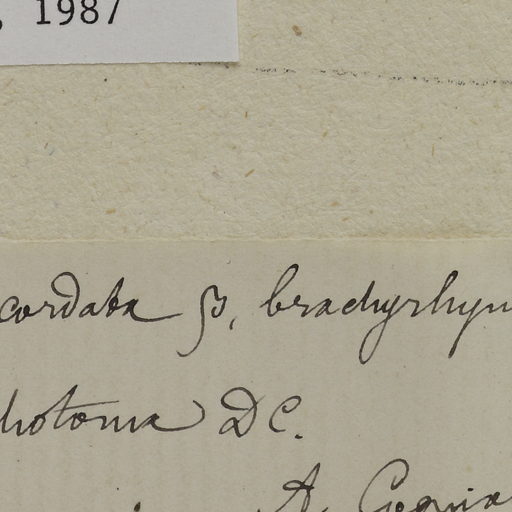 , 1987
cordata β, brachyrhyn
hotoma DC.
A. Cognia